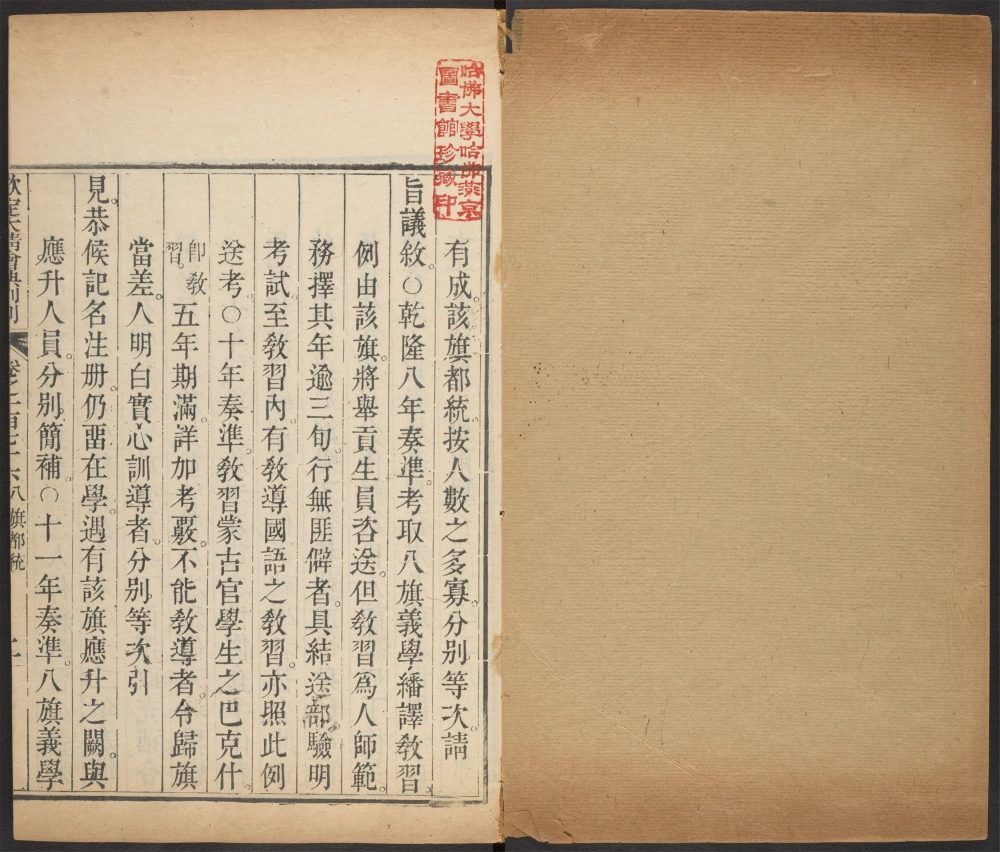 哈佛大學哈佛燕京
圖書館珍藏印
有成。該旗都統按人數之多寡。分別等次。請
旨議敘。○乾隆八年奏準。考取八旗義學繙譯教習。
例由該旗將舉貢生員咨送。但教習爲人師範。
務擇其年逾三旬。行無匪僻者。具結送部。驗明
考試。至教習內。有教導國語之教習。亦照此例
送考。○十年奏準。教習蒙古官學生之巴克什。
卽教
習。五年期滿。詳加考覈。不能教導者。令歸旗
當差。人明白實心訓導者。分別等次引
見。恭候記名注册。仍畱在學。遇有該旗應升之闕。與
應升人員。分別簡補。○十一年奏準。八旗義學
欽定大清會典則例
卷一百七十六八旗都統
二